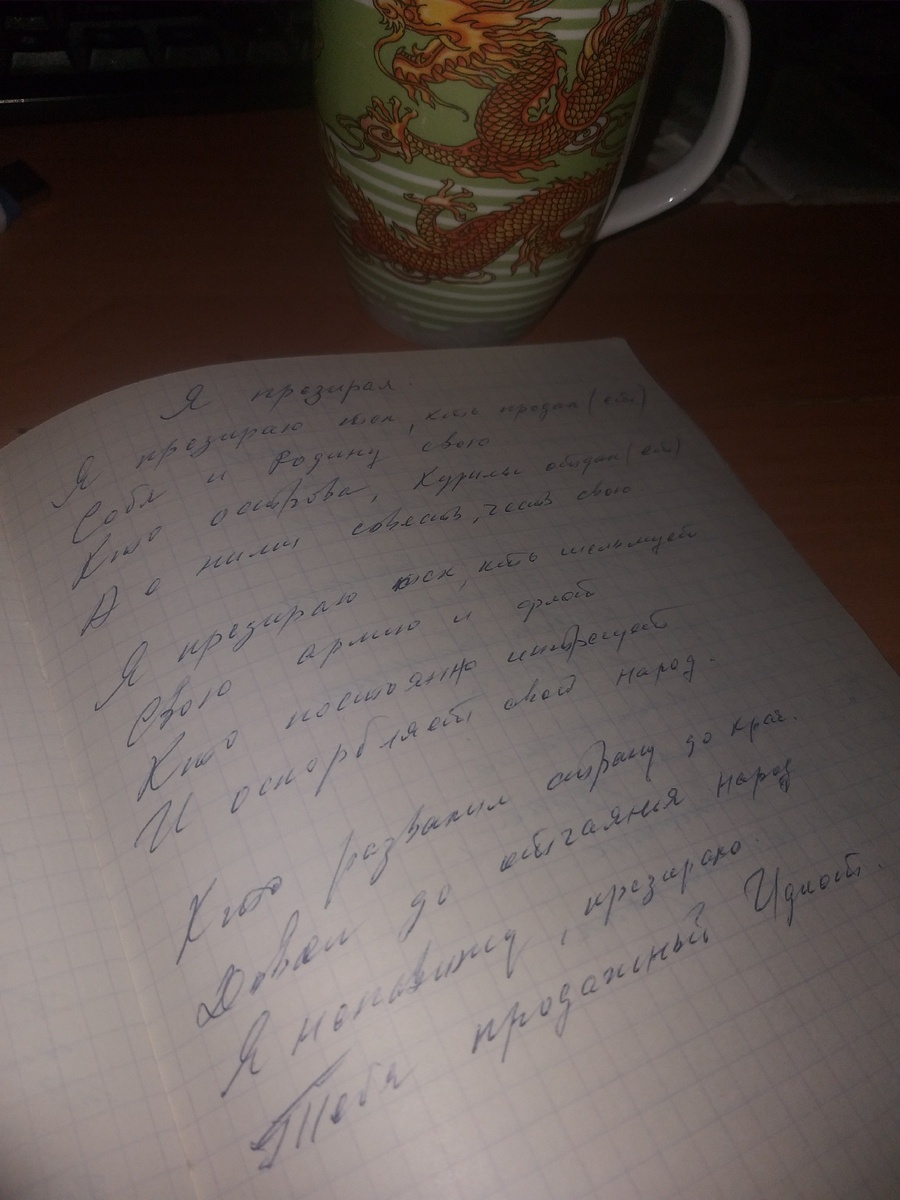 Я презирал.
Я презираю тех, кто продал(ет)
Себя и Родину свою
Кто острова, Курилы отдал(ет)
А с ними совесть, честь свою
Я презираю тех, кто шельмует
Свою армию и флот
Кто постоянно
И оскорбляет свой народ.
Кто развалил страну до края.
Довёл до отчаяния народ
Я ненавижу, презираю.
Тебя продажный Идиот.